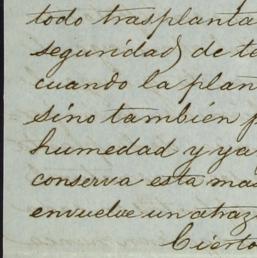 todo trasplanta
seguridad) de te
cuando la plan
sino también p
humedad y ya
conserva esta ma
envuelve un atraz
Cierto